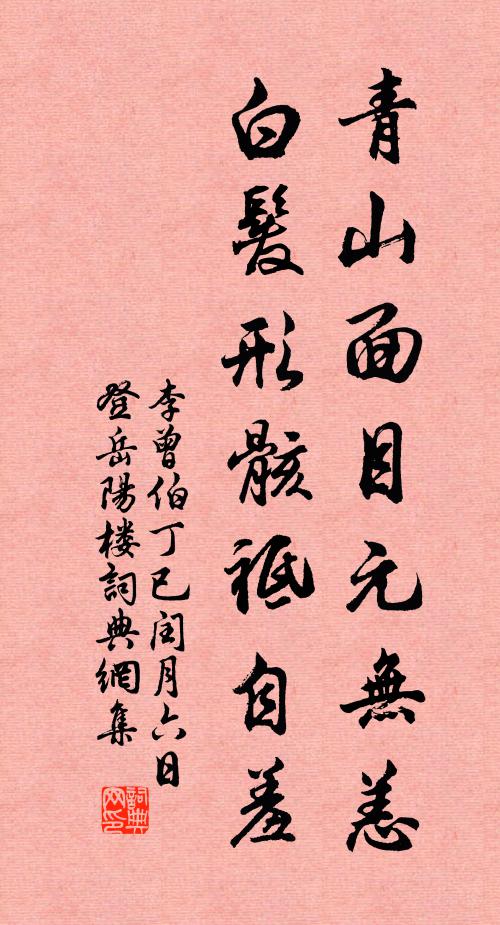 青山面目元無恙
白髮形骸祗自羞
李曾伯丁巳閏月六日
登岳陽楼詞典網集
詞典
网印